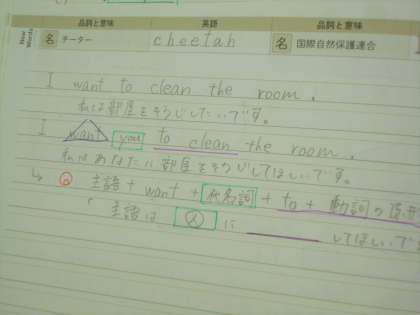 品詞と意味 英語 品詞と意味
New Words 名 チーター cheetah 名 国際自然保護連合
I want to clean the room.
私は部屋をそうじしたいです。
I want you to clean the room.
私はあなたに部屋をそうじしてほしいです。
↳ 主語 + want + 代名詞 + to + 動詞の原形
主語は 人 に してほしいで